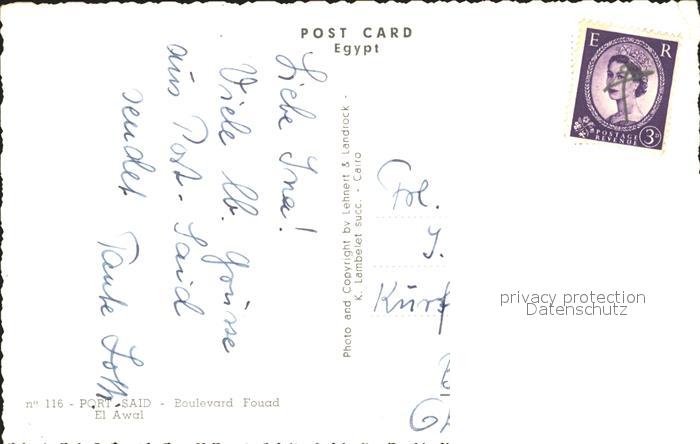 POST CARD
Egypt
E R
POSTAGE
REVENUE
3D
Liebe Ina!
Viele lb. Grüsse
aus Port-Said
sendet Tante Lott.
Photo and Copyright by Lehnert & Landrock -
K. Lambelet succ. - Cairo
Frl.
I.
Kurf
privacy protection
Datenschutz
nº 116 - PORT SAID - Boulevard Fouad
El Awal